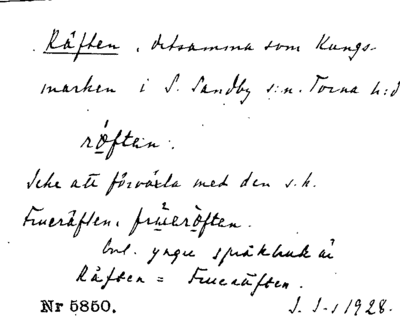 Räften, detsamma som Kungs-
marken i S. Sandby s:n. Torna h:d
röften.
Icke att förväxla med den s.k.
Frueräften, früeröften.
Enl. yngre språkbruk är
Räften = Frueräften.
Nr 5850. 1928.